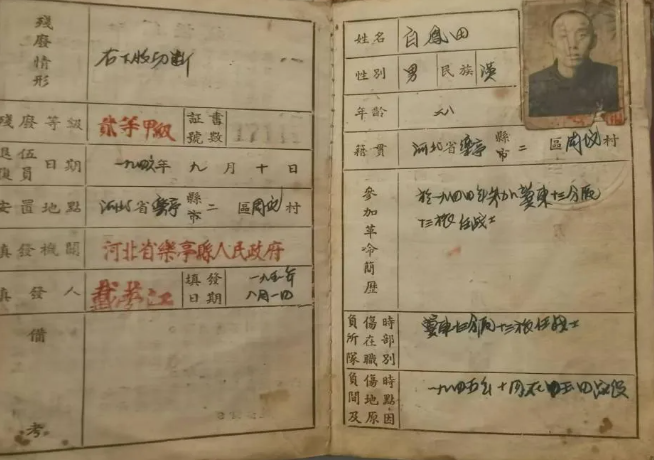 殘廢情形
右下肢切断
殘廢等級
貳等甲級
証書號數
退伍復員日期
一九四六年九月十日
安置地點
河北省樂亭縣市二區周坨村
填發機關
河北省樂亭縣人民政府
填發人
填發日期
一九五一年
八月一日
備考
姓名
白鳳田
性別
男
民族
漢
年齡
籍貫
河北省樂亭縣市二區周坨村
參加革命簡歷
於一九四四年
冀東十三分區
十三旅任战士
負傷時所在部隊職別
冀東十三分區十三旅任战士
負傷時間地點及原因
一九四五年十月在